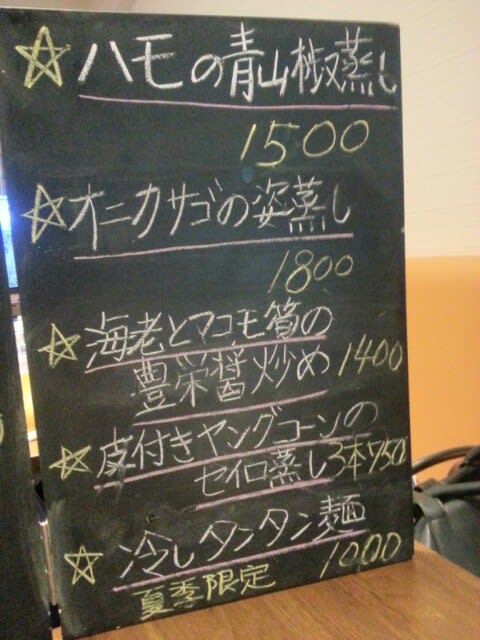 ☆ハモの青山椒蒸し
1500
☆オニカサゴの姿蒸し
1800
☆海老とマコモ筍の
豊栄醤炒め 1400
☆皮付きヤングコーンの
セイロ蒸し 3本750
☆冷しタンタン麺
夏季限定 1000